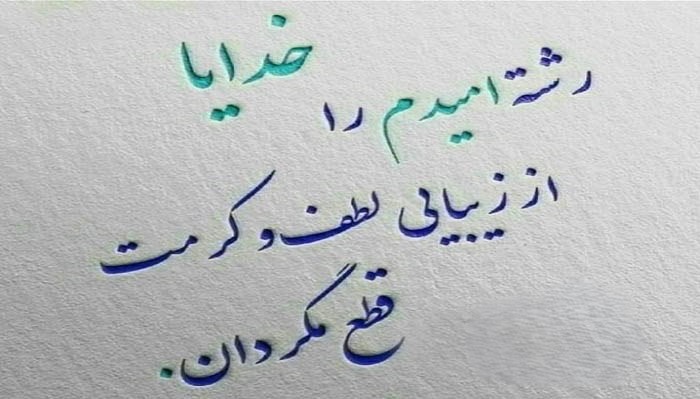 خدایا
رشتۀ امیدم را
از زیبایی لطف و کرمت
قطع مگردان.